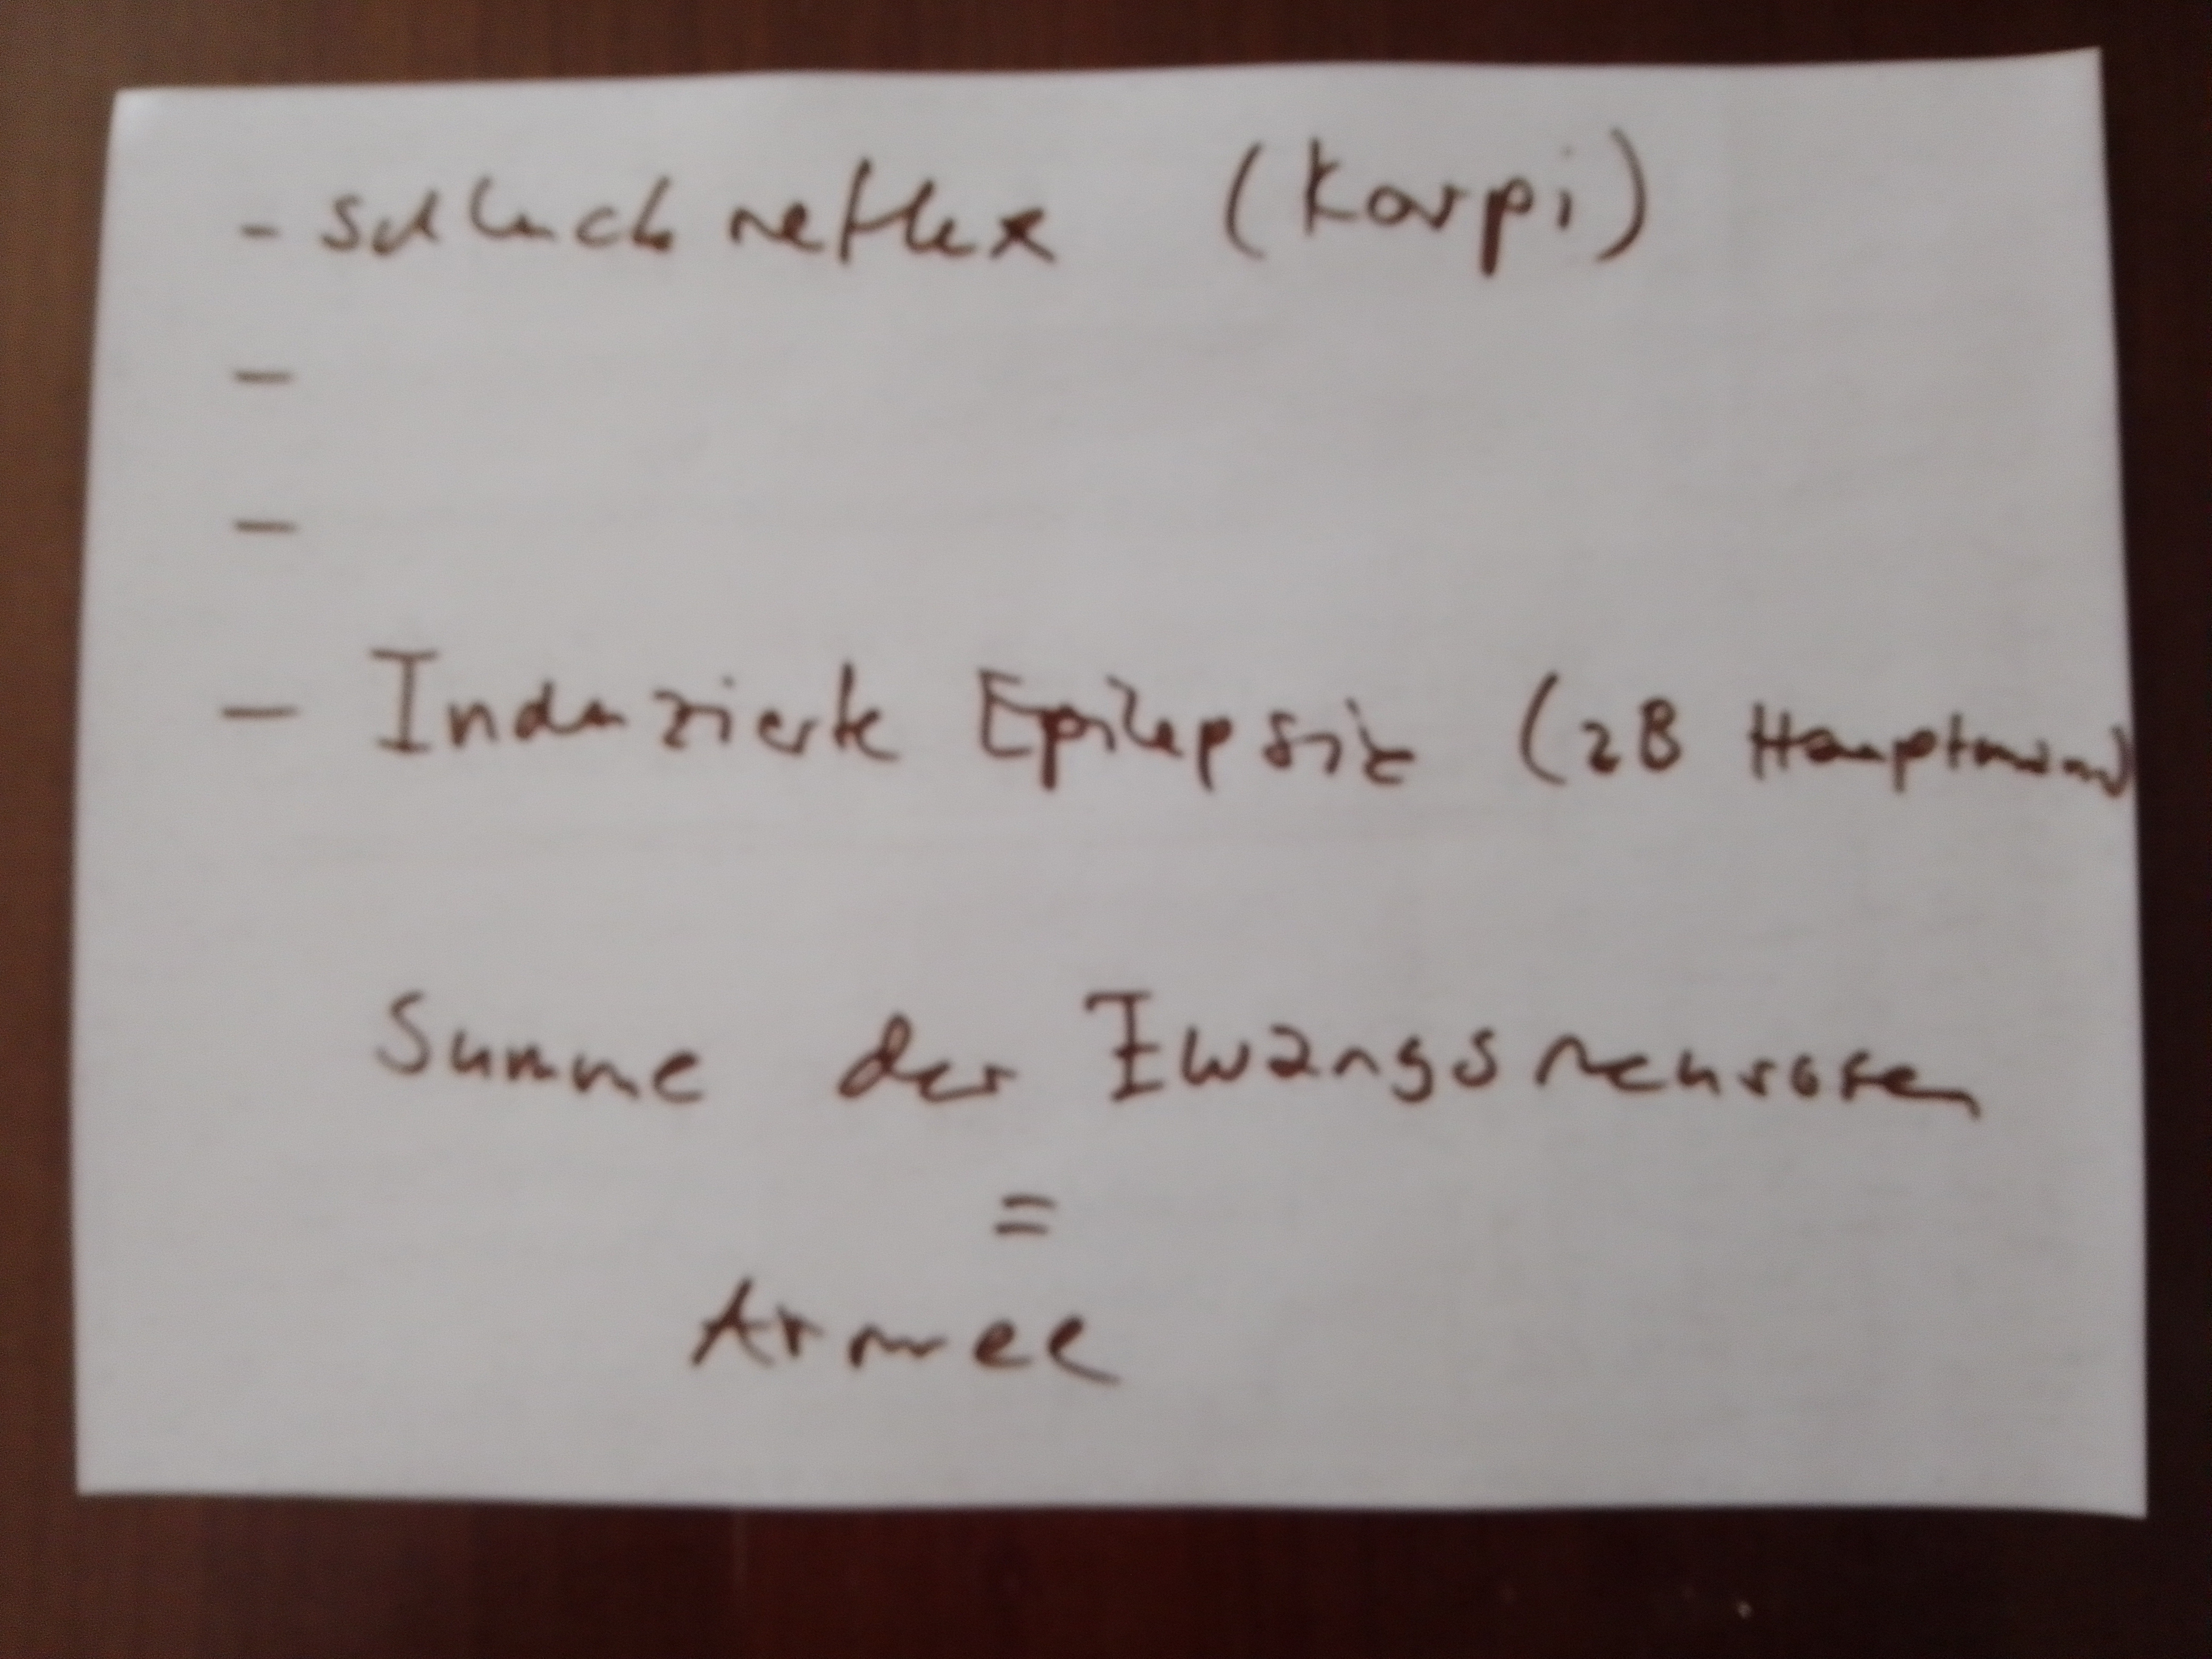 - Schluckreflex (Korpi)
-
-
- Induzierte Epilepsie (zB Hauptmann)
Summe der Zwangsneurosen
=
Armee